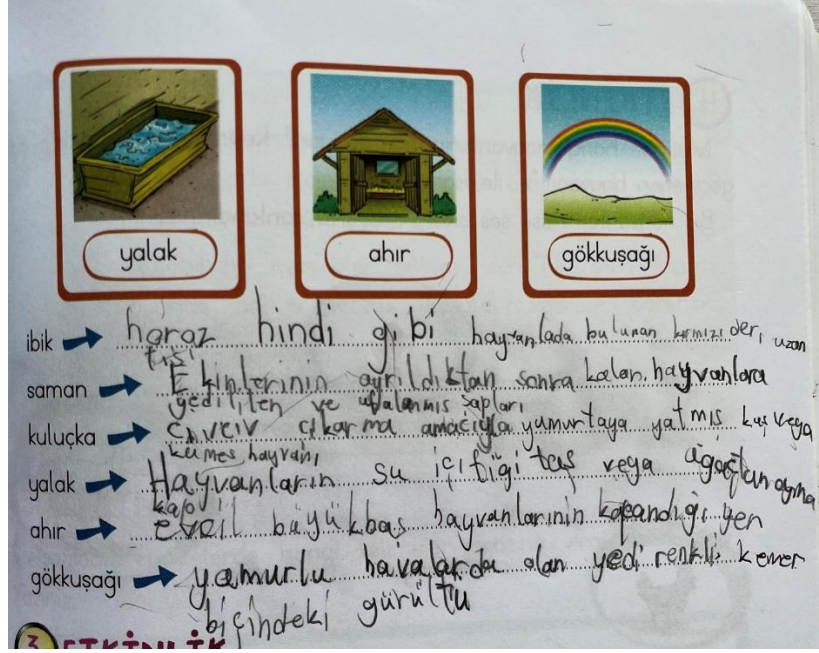 yalak
ahır
gökkuşağı
ibik horoz hindi gibi hayvanlada bulunan kırmızı deri, uzan
tısı
saman Ekinlerinin ayrıldıktan sonra kalan, hayvanlara
yediliten ve ufalanmış sapları
kuluçka civciv çıkarma amacıyla yumurtaya yatmış kuş veya
kümes hayvanı
yalak Hayvanların su içitiği taş veya ağaçtan oyma
kap
ahır evcil büyükbaş hayvanlarının kapandığı yer
gökkuşağı yamurlu havalarda olan yedi renkli kemer
biçindeki gürültü
3 ETKİNLİK